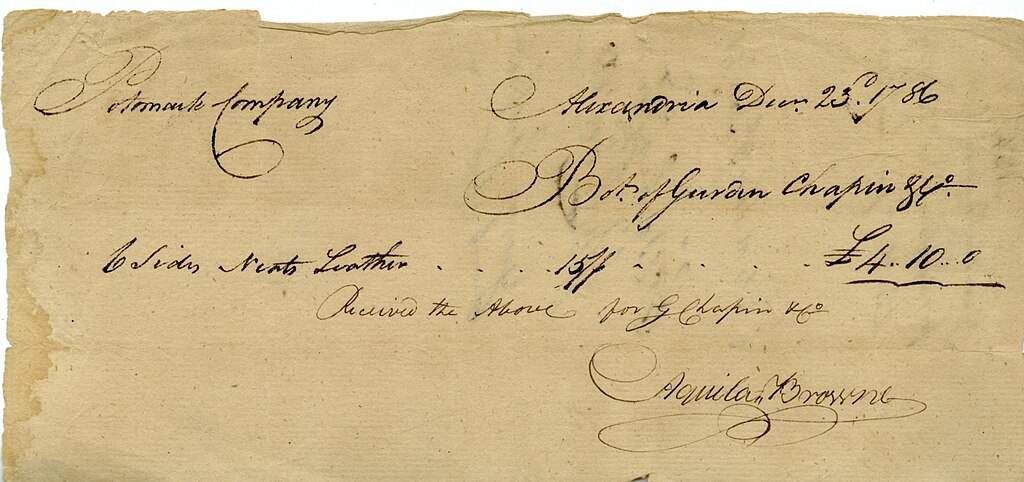 Potomack Company
Alexandria Decr. 23d. 1786
Bot. of Gurdan Chapin & Co
6 Sides Neats Leather . . . . 15/ . . . . £4..10..0
Received the Above for G Chapin & Co
Aquila Browne